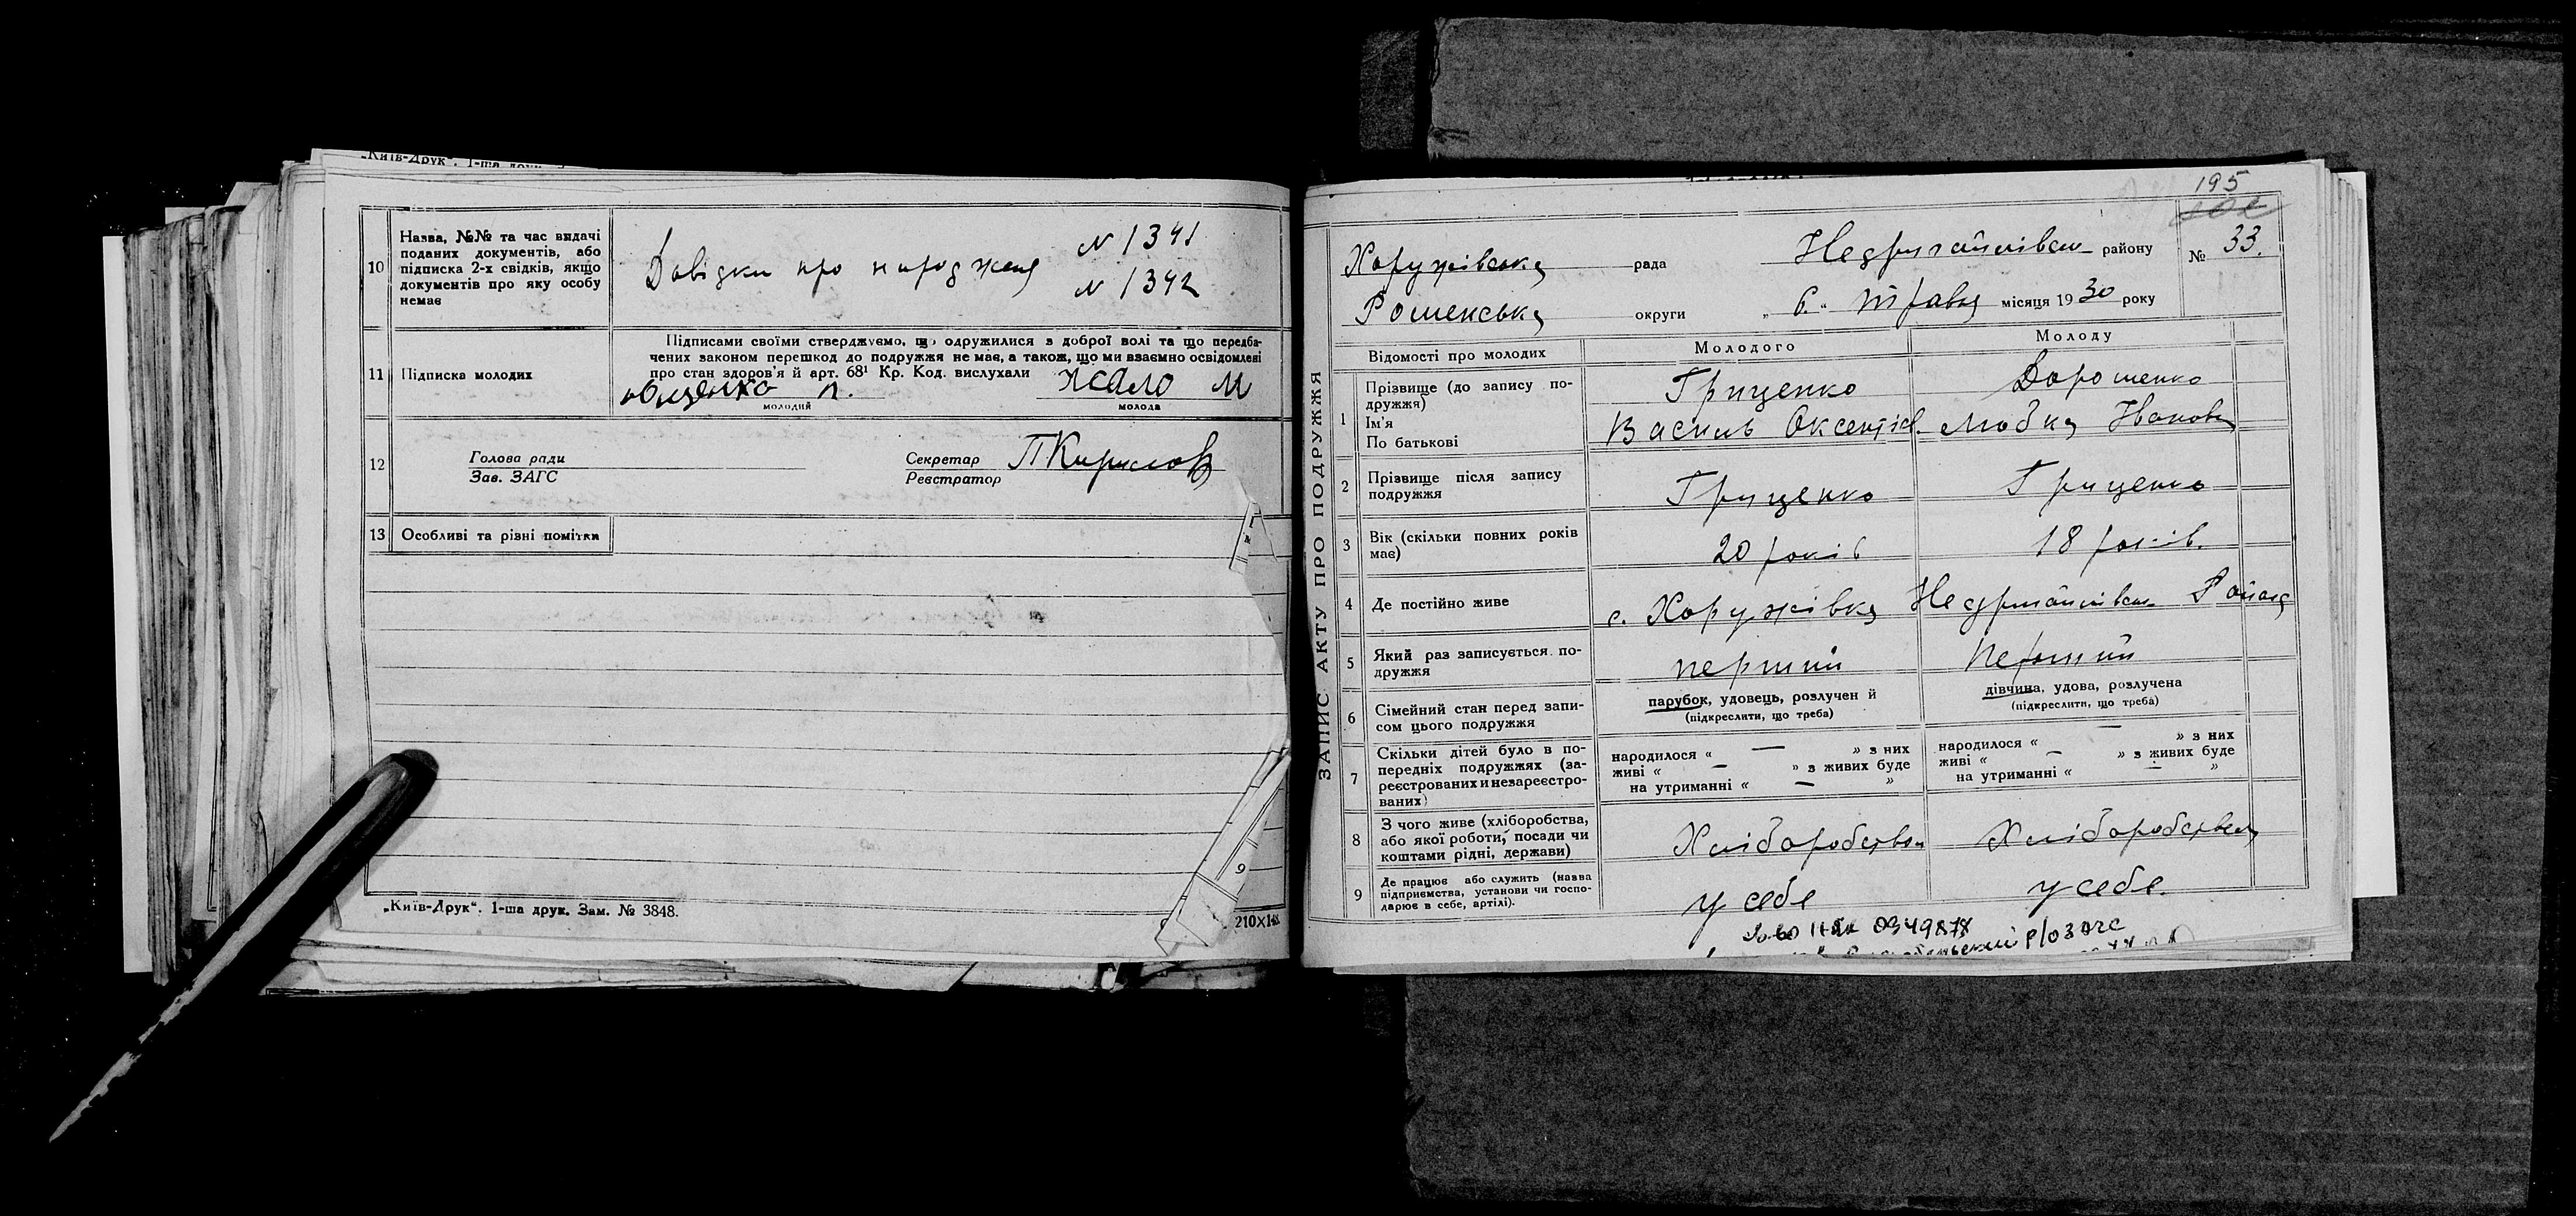 „Київ-Друк“. 1-ша друк.
10
Назва, №№ та час видачі
поданих документів, або
підписка 2-х свідків, якщо
документів про яку особу
немає
Довідки про народженя
N 1341
N 1342
11
Підписка молодих
Підписами своїми стверджуємо, що одружилися з доброї волі та що передба-
чених законом перешкод до подружжя не має, а також, що ми взаємно освідомлені
про стан здоров'я й арт. 68¹ Кр. Код. вислухали
Ющенко П.
Жало М
молодий
молода
12
Голова ради
Зав. ЗАГС
Секретар
Реєстратор
ПКирилов
13
Особливі та різні помітки
9
„Київ-Друк“. 1-ша друк. Зам. № 3848.
210X148
195
ЗАПИС АКТУ ПРО ПОДРУЖЖЯ
Хоружівська рада Недригайлівськ району № 33.
Роменська округи „ 6. “ травня місяця 1930 року
Відомості про молодих
Молодого
Молоду
1
Прізвище (до запису по-
дружжя)
Ім'я
По батькові
Гриценко
Василь Оксентієв.
Дорошенко
Любка Іванова
2
Прізвище після запису
подружжя
Гриценко
Гриценко
3
Вік (скільки повних років
має)
20 років
18 років.
4
Де постійно живе
с. Хоружівка Недригайлівськ Района
5
Який раз записується по-
дружжя
перший
перший
6
Сімейний стан перед запи-
сом цього подружжя
парубок, удовець, розлучен й
(підкреслити, що треба)
дівчина, удова, розлучена
(підкреслити, що треба)
7
Скільки дітей було в по-
передніх подружжях (за-
реєстрованих и незареєстро-
ваних)
народилося “ — ” з них
живі “ — ” з живих буде
на утриманні “ — ”
народилося “ — ” з них
живі “ — ” з живих буде
на утриманні “ — ”
8
З чого живе (хліборобства,
або якої роботи, посади чи
коштами рідні, держави)
Хліборобства
Хліборобства
9
Де працює або служить (назва
підприємства, установи чи госпо-
дарює в себе, артілі).
у себе
у себе.
0349877